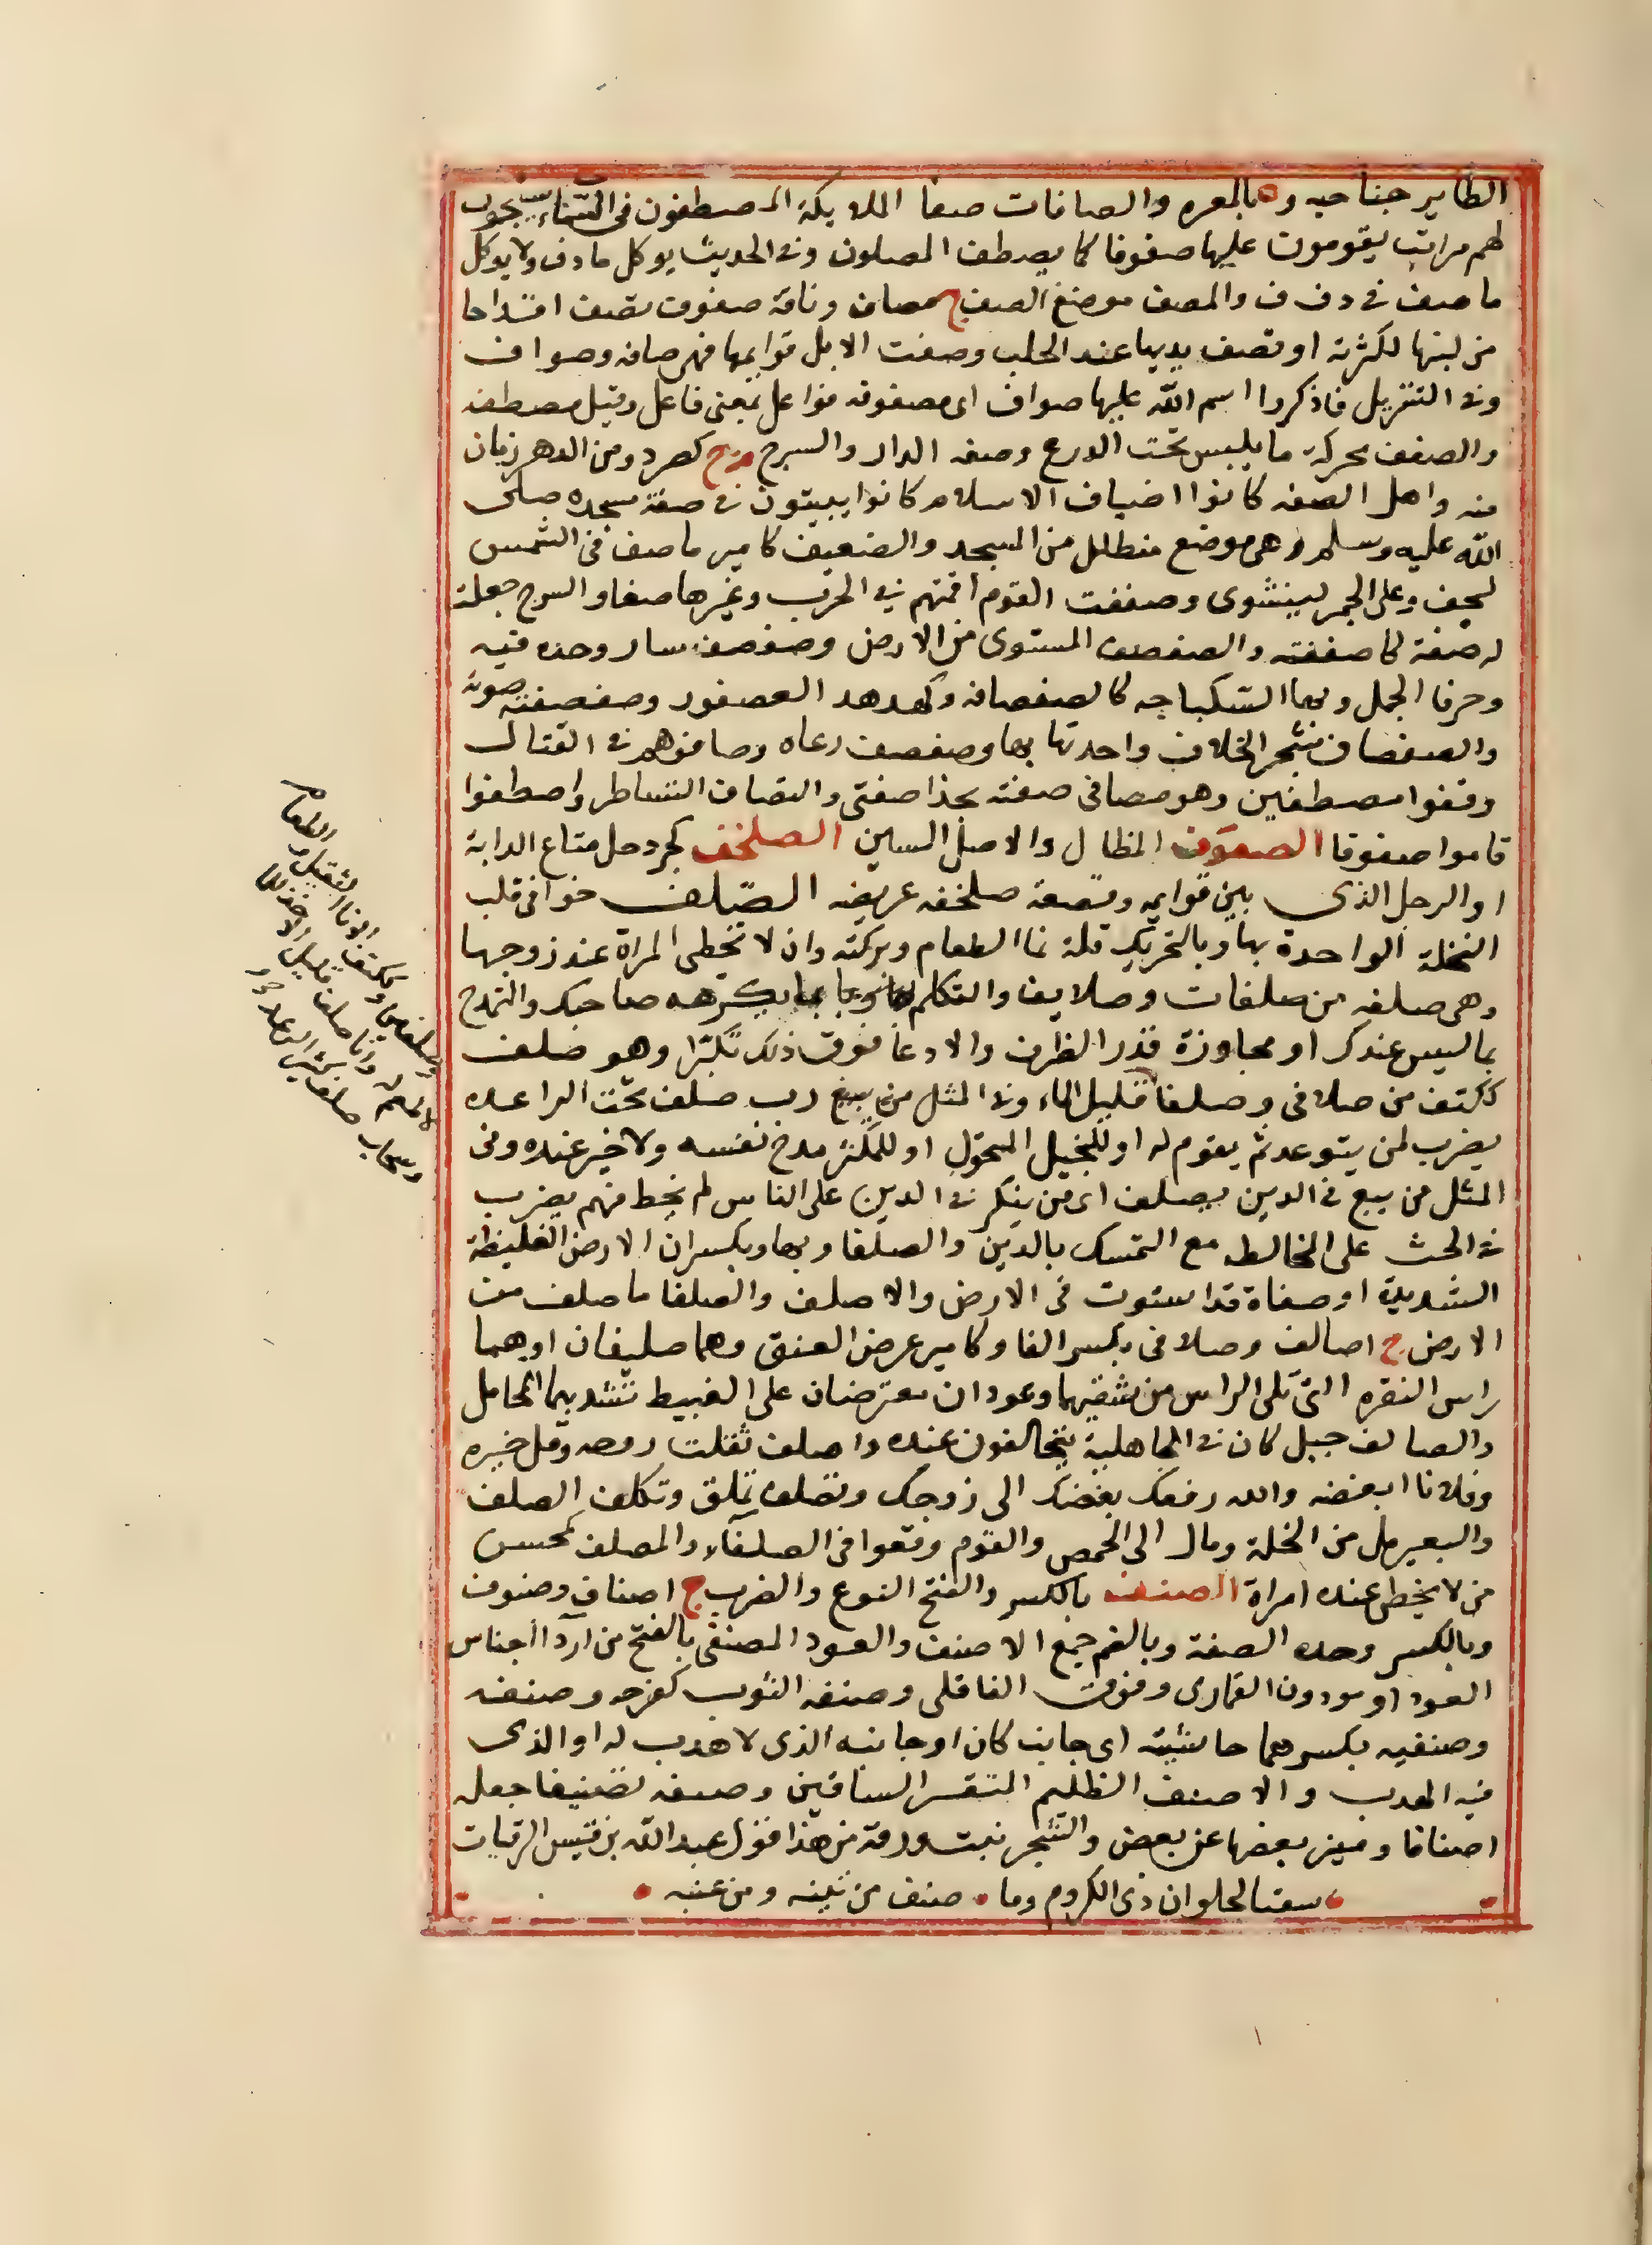 الطاير جناحيه و ة بالمعرة والصافات صفا الملايكة المصطفون فى السماء يسبحون
لهم مراتب يقومون عليها صفوفا كما يصطف المصلون وفى الحديث يوكل ما دف ولا يوكل
ما صف فى د ف ف والمصف موضع الصف ج مصاف وناقة صفوف تصف اقداحا
من لبنها لكثرته او تصف يديها عند الحلب وصفت الابل قوايمها فهى صافه وصواف
وفى التنزيل فاذكروا اسم الله عليها صواف اى مصفوفه فواعل بمعنى فاعل وقيل مصطفه
والصفف محركة ما يلبس تحت الدرع وصفه الدار والسرج م ج كصرد ومن الدهر زمان
منه واهل الصفه كانوا اضياف الاسلام كانوا يبيتون فى صفة مسجده صلى
الله عليه وسلم وهى موضع مظلل من المسجد والصفيف كامير ما صف فى الشمس
ليجف وعلى الجمر لينشوى وصففت القوم اقمتهم فى الحرب وغيرها صفا والسرج جعلت
له صفة كاصففته والصفصف المستوى من الارض وصفصف سار وحده فيه
وحرف الجبل وبهاالسكباجه كالصفصافه وكهدهد العصفور وصفصفته صوته
والصفصاف شجر الخلاف واحدتها بها وصفصف رعاه وصافوهم فى القتال
وقفوا مصطفين وهو مصافى صفته بحذا صفتى والتصاف التساطر واصطفوا
قاموا صفوفا الصقوف المظال والاصل السين الصلخف كجردحل متاع الدابة
او الرحل الذى بين قوايمه وقصعة صلخفه عريضه الصلف خوافى قلب
النخلة الواحدة بها وبالتحريك قلة نما الطعام وبركته وان لا تحظى المراة عند زوجها
وهى صلفه من صلفات وصلايف والتكلم بما يكرهه صاحبك والتمدح
بما ليس عندك او مجاوزة قدر الظرف والادعا فوق ذلك تكبرا وهو صلف
ككتف من صلافى وصلفا قليل الماء وفى المثل رب صلف تحت الراعده
يضرب لمن يتوعد ثم يقوم له او للبخيل المتمول او للمكثر مدح نفسه ولا خير عنده وفى
المثل من يبغ فى الدين يصلف اى من ينكر فى الدين على الناس لم يحظ منهم يضرب
فى الحث على المخالطه مع التمسك بالدين والصلفا وبها ويكسران الارض الغليظة
الشديدة او صفاة قد استوت فى الارض والاصلف والصلفا ما صلف من
الارض ج اصالف وصلافى بكسر الفا وكامير عرض العنق وهما صليفان او هما
راس الفقره التى تلى الراس من شقيهما وعودان معترضان على الغبيط تشد بهما المحامل
والصالف جبل كان فى الجاهلية يتحالفون عنده واصلف ثقلت روحه وقل خيره
وفلانا ابغضه والله رفعك بغضك الى زوجك وتصلف تملق وتكلف الصلف
والبعير مل من الخلة ومال الى الحمض والقوم وقعوا فى الصلفآء والمصلف كمحسن
من لا يحظى عنده امراة الصنف بالكسر والفتح النوع والضرب ج اصناف وصنوف
وبالكسر وحده الصفة وبالضم جمع الاصنف والعود الصنفى بالفتح من اردا اجناس
العود او هو دون القمارى وفوق القاقلى وصنفه الثوب كفرحه وصنفه
وصنفيه بكسرهما حاشيته اى جانب كان او جانبه الذى لا هدب له او الذى
فيه الهدب والاصنف الظليم المتقسر الساقين وصنفه تصنيفا جعله
اصنافا وميز بعضها عن بعض والشجر نبت ورقه من هذا قول عبد الله بن قيس الرقيات
سقيا لحلوان ذى الكروم وما صنف من تينه ومن عنبه
الطعام